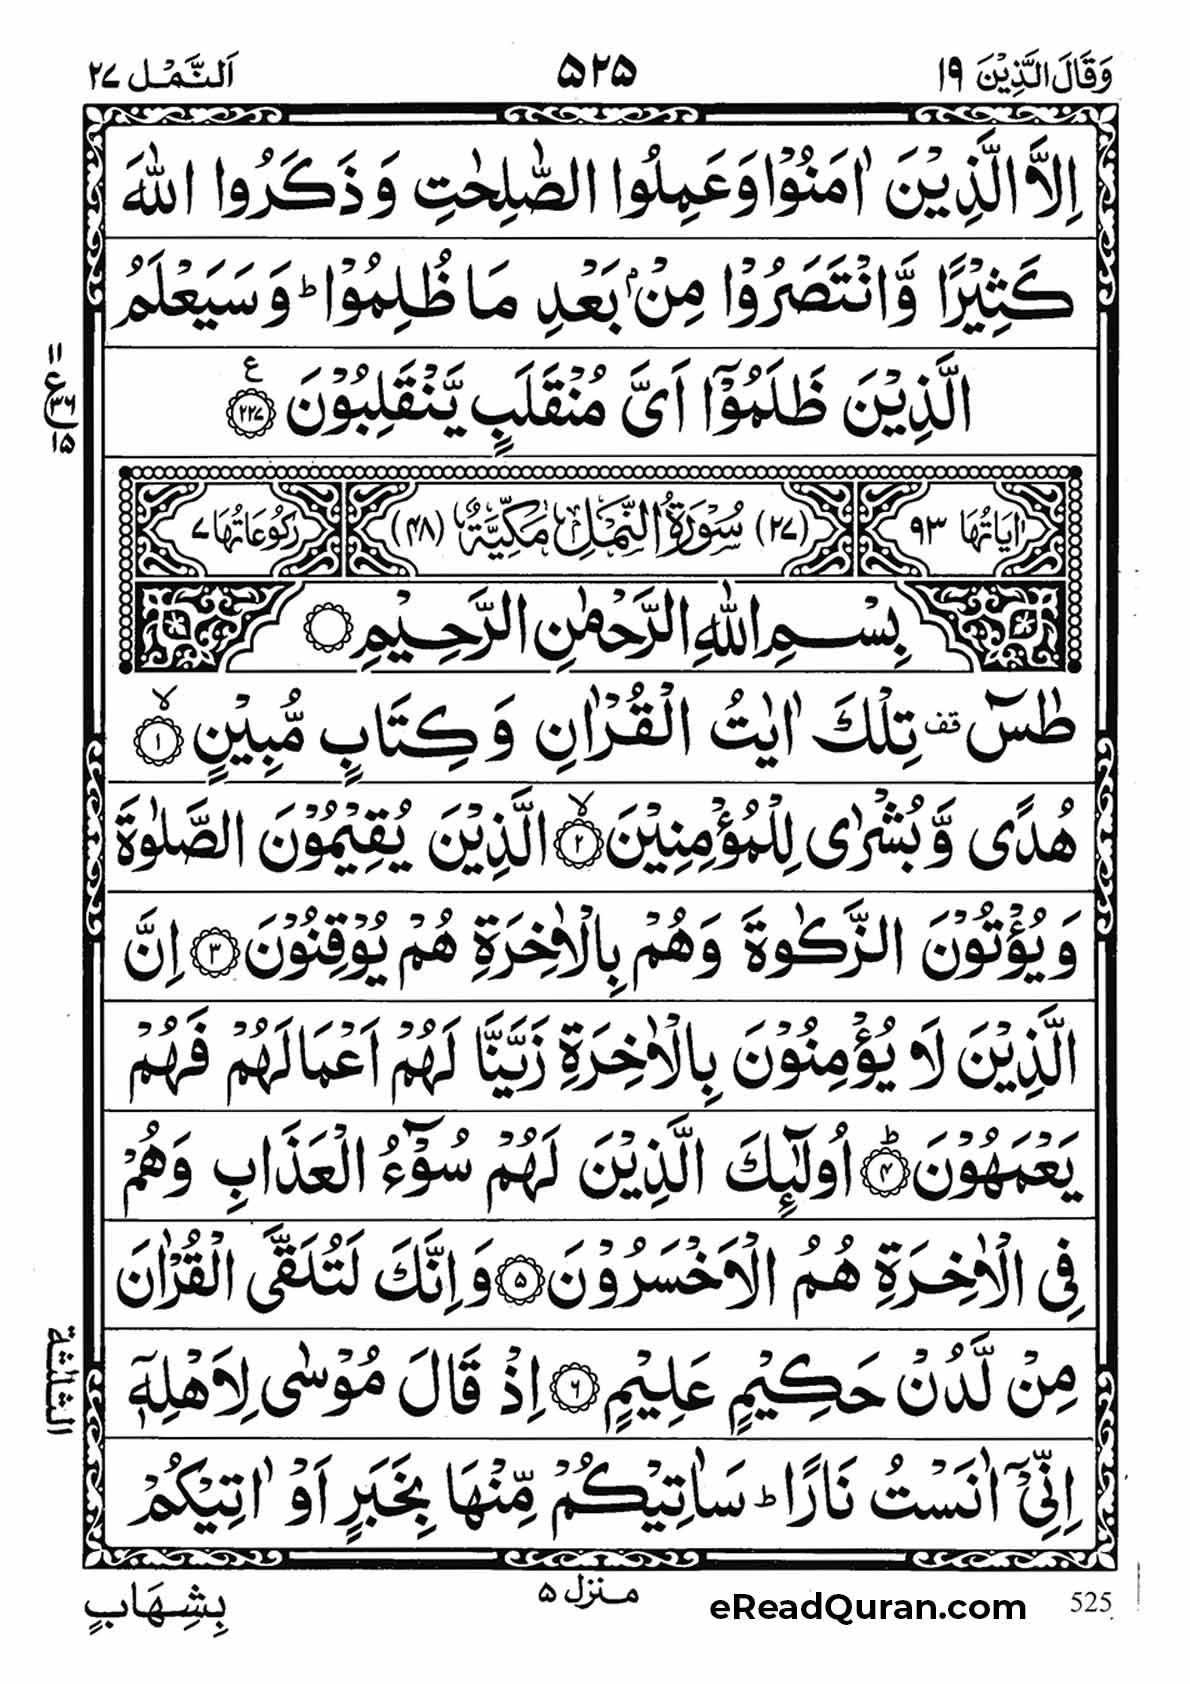 وَقَالَ الَّذِيْنَ ١٩
٥٢٥
اَلنَّمْل ٢٧
اِلَّا الَّذِيْنَ اٰمَنُوْا وَعَمِلُوا الصّٰلِحٰتِ وَ ذَكَرُوا اللّٰهَ
كَثِيْرًا وَّ انْتَصَرُوْا مِنْۢ بَعْدِ مَا ظُلِمُوْا ؕ وَ سَيَعْلَمُ
الَّذِيْنَ ظَلَمُوْۤا اَىَّ مُنْقَلَبٍ يَّنْقَلِبُوْنَ ۧ ﴿٢٢٧﴾
١١
ع
٣٦
١٥
اٰيَاتُهَا ٩٣
(٢٧) سُوْرَةُ النَّمْلِ مَكِّيَّةٌ (٤٨)
رُكُوْعَاتُهَا ٧
بِسْمِ اللّٰهِ الرَّحْمٰنِ الرَّحِيْمِ
طٰسٓ قف تِلْكَ اٰيٰتُ الْقُرْاٰنِ وَ كِتَابٍ مُّبِيْنٍ ۙ ﴿١﴾
هُدًى وَّ بُشْرٰى لِلْمُؤْمِنِيْنَ ۙ ﴿٢﴾ الَّذِيْنَ يُقِيْمُوْنَ الصَّلٰوةَ
وَ يُؤْتُوْنَ الزَّكٰوةَ وَ هُمْ بِالْاٰخِرَةِ هُمْ يُوْقِنُوْنَ ﴿٣﴾ اِنَّ
الَّذِيْنَ لَا يُؤْمِنُوْنَ بِالْاٰخِرَةِ زَيَّنَّا لَهُمْ اَعْمَالَهُمْ فَهُمْ
يَعْمَهُوْنَ ؕ ﴿٤﴾ اُولٰٓئِكَ الَّذِيْنَ لَهُمْ سُوْٓءُ الْعَذَابِ وَهُمْ
فِى الْاٰخِرَةِ هُمُ الْاَخْسَرُوْنَ ﴿٥﴾ وَ اِنَّكَ لَتُلَقَّى الْقُرْاٰنَ
مِنْ لَّدُنْ حَكِيْمٍ عَلِيْمٍ ﴿٦﴾ اِذْ قَالَ مُوْسٰى لِاَهْلِهٖۤ
الثلثة
اِنِّىْۤ اٰنَسْتُ نَارًا ؕ سَاٰتِيْكُمْ مِّنْهَا بِخَبَرٍ اَوْ اٰتِيْكُمْ
بِشِهَابٍ
منزل ٥
eReadQuran.com
525